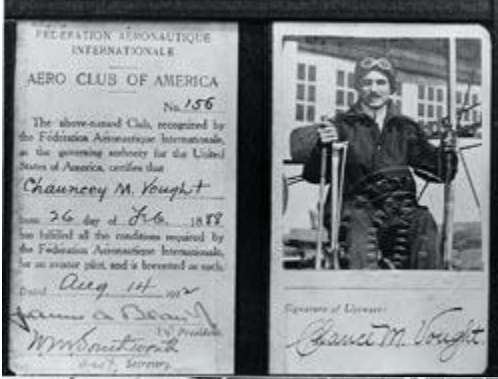 FÉDÉRATION AÉRONAUTIQUE
INTERNATIONALE
AERO CLUB OF AMERICA
No. 156
The above-named Club, recognized by
the Fédération Aéronautique Internationale,
as the governing authority for the United
States of America, certifies that
Chauncey M. Vought
born 26 day of Feb. 1888
has fulfilled all the conditions required by
the Fédération Aéronautique Internationale,
for an aviator pilot, and is brevetted as such.
Dated Aug 14 1912
James A
President
Secretary
Signature of Licensee:
Chance M. Vought